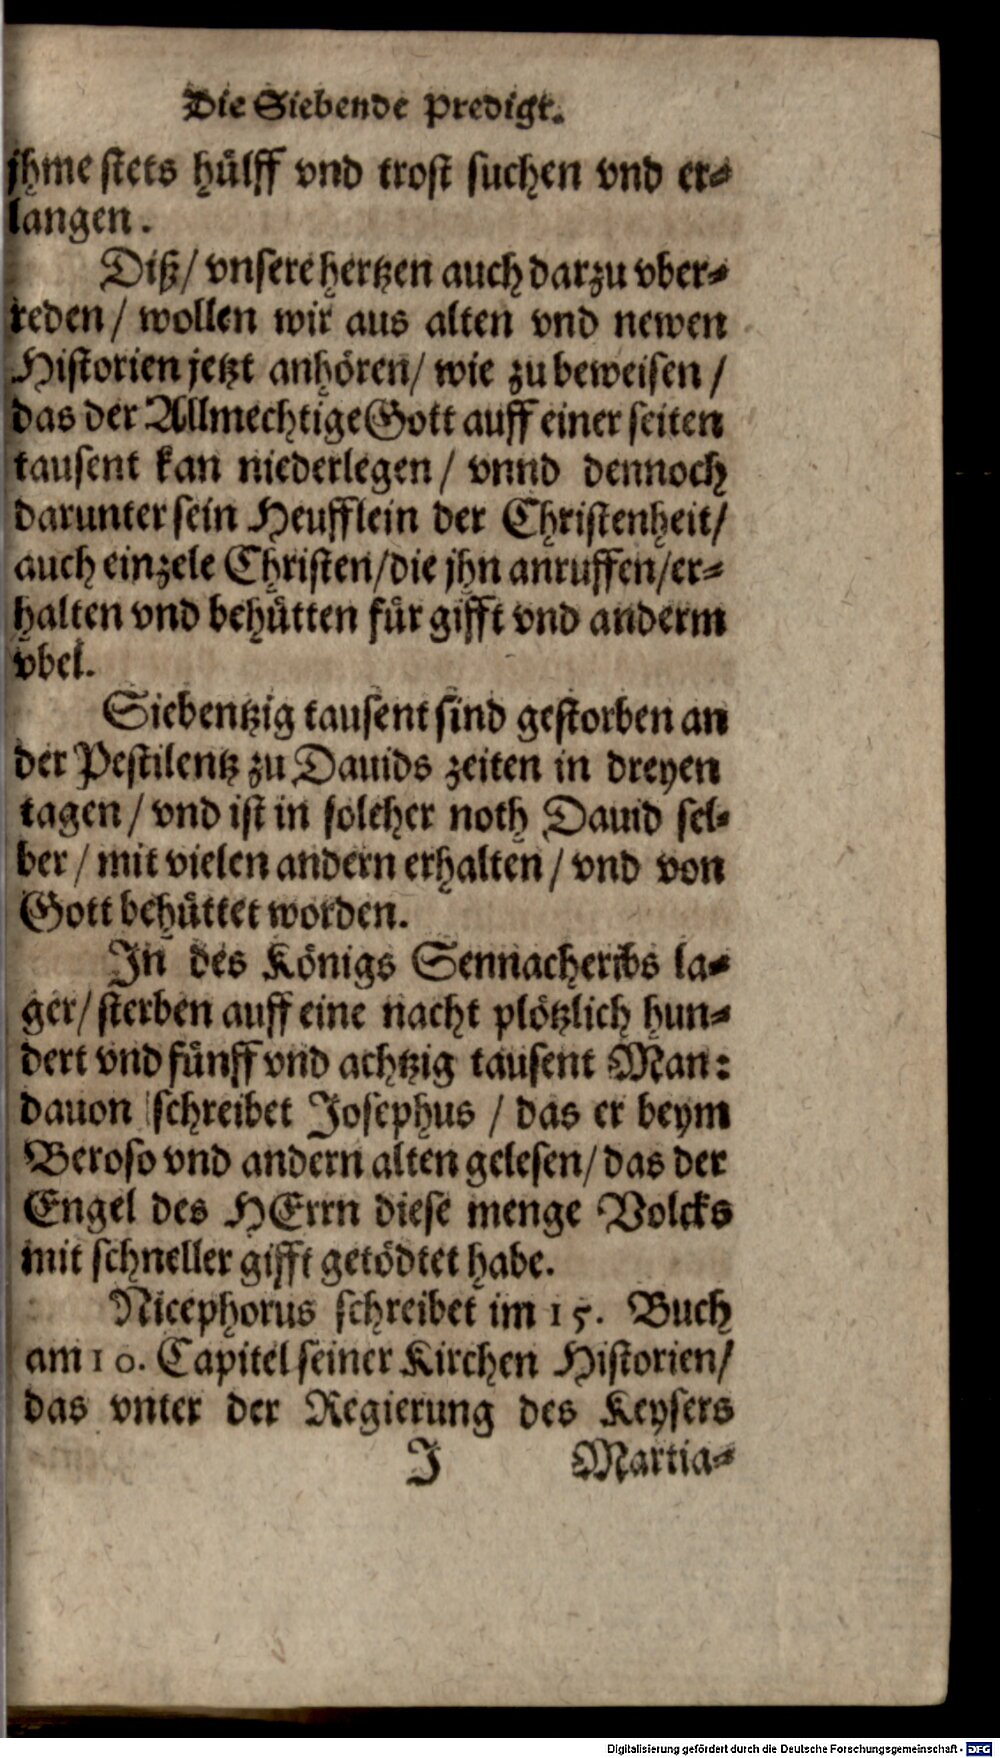 Die Siebende Predigt.
jhme stets hülff vnd trost suchen vnd er⸗
langen.
Diß/ vnsere hertzen auch darzu vber⸗
reden/ wollen wir aus alten vnd newen
Historien jetzt anhören/ wie zu beweisen/
das der Allmechtige Gott auff einer seiten
tausent kan niederlegen/ vnnd dennoch
darunter sein Heufflein der Christenheit/
auch einzele Christen/ die jhn anruffen/ er⸗
halten vnd behütten für gifft vnd anderm
vbel.
Siebentzig tausent sind gestorben an
der Pestilentz zu Dauids zeiten in dreyen
tagen/ vnd ist in solcher noth Dauid sel⸗
ber/ mit vielen andern erhalten/ vnd von
Gott behüttet worden.
In des Königs Sennacheribs la⸗
ger/ sterben auff eine nacht plötzlich hun⸗
dert vnd fünff vnd achtzig tausent Man:
dauon schreibet Josephus/ das er beym
Beroso vnd andern alten gelesen/ das der
Engel des HErrn diese menge Volcks
mit schneller gifft getödtet habe.
Nicephorus schreibet im 15. Buch
am 10. Capitel seiner Kirchen Historien/
das vnter der Regierung des Keysers
J Martia⸗
Digitalisierung gefördert durch die Deutsche Forschungsgemeinschaft - DFG